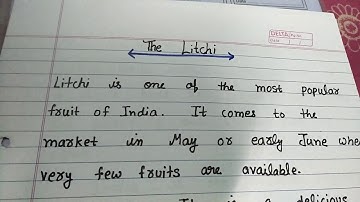 The Litchi
Litchi is one of the most popular
fruit of India. It comes to the
market in May or early June whe
very few fruits are available.
delicious